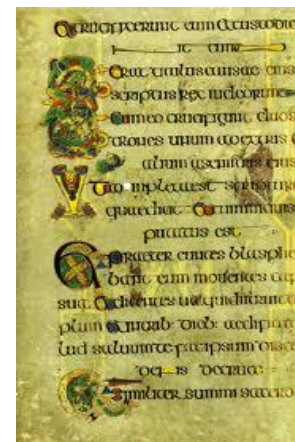 crucifixerunt eum et custodie
erat titulus causae eius
scriptus rex iudeorum
cum eo crucifigunt duos
trones unum a dextris e
alium a sinistris eius
impleta est scriptur
quae dicit et cum iniquis
putatus est
praeter euntes blasphe
bant eum mouentes cap
sua et dicentes
plum
saluum te fac ipsum disce
de cruce
similiter summi sacerdo